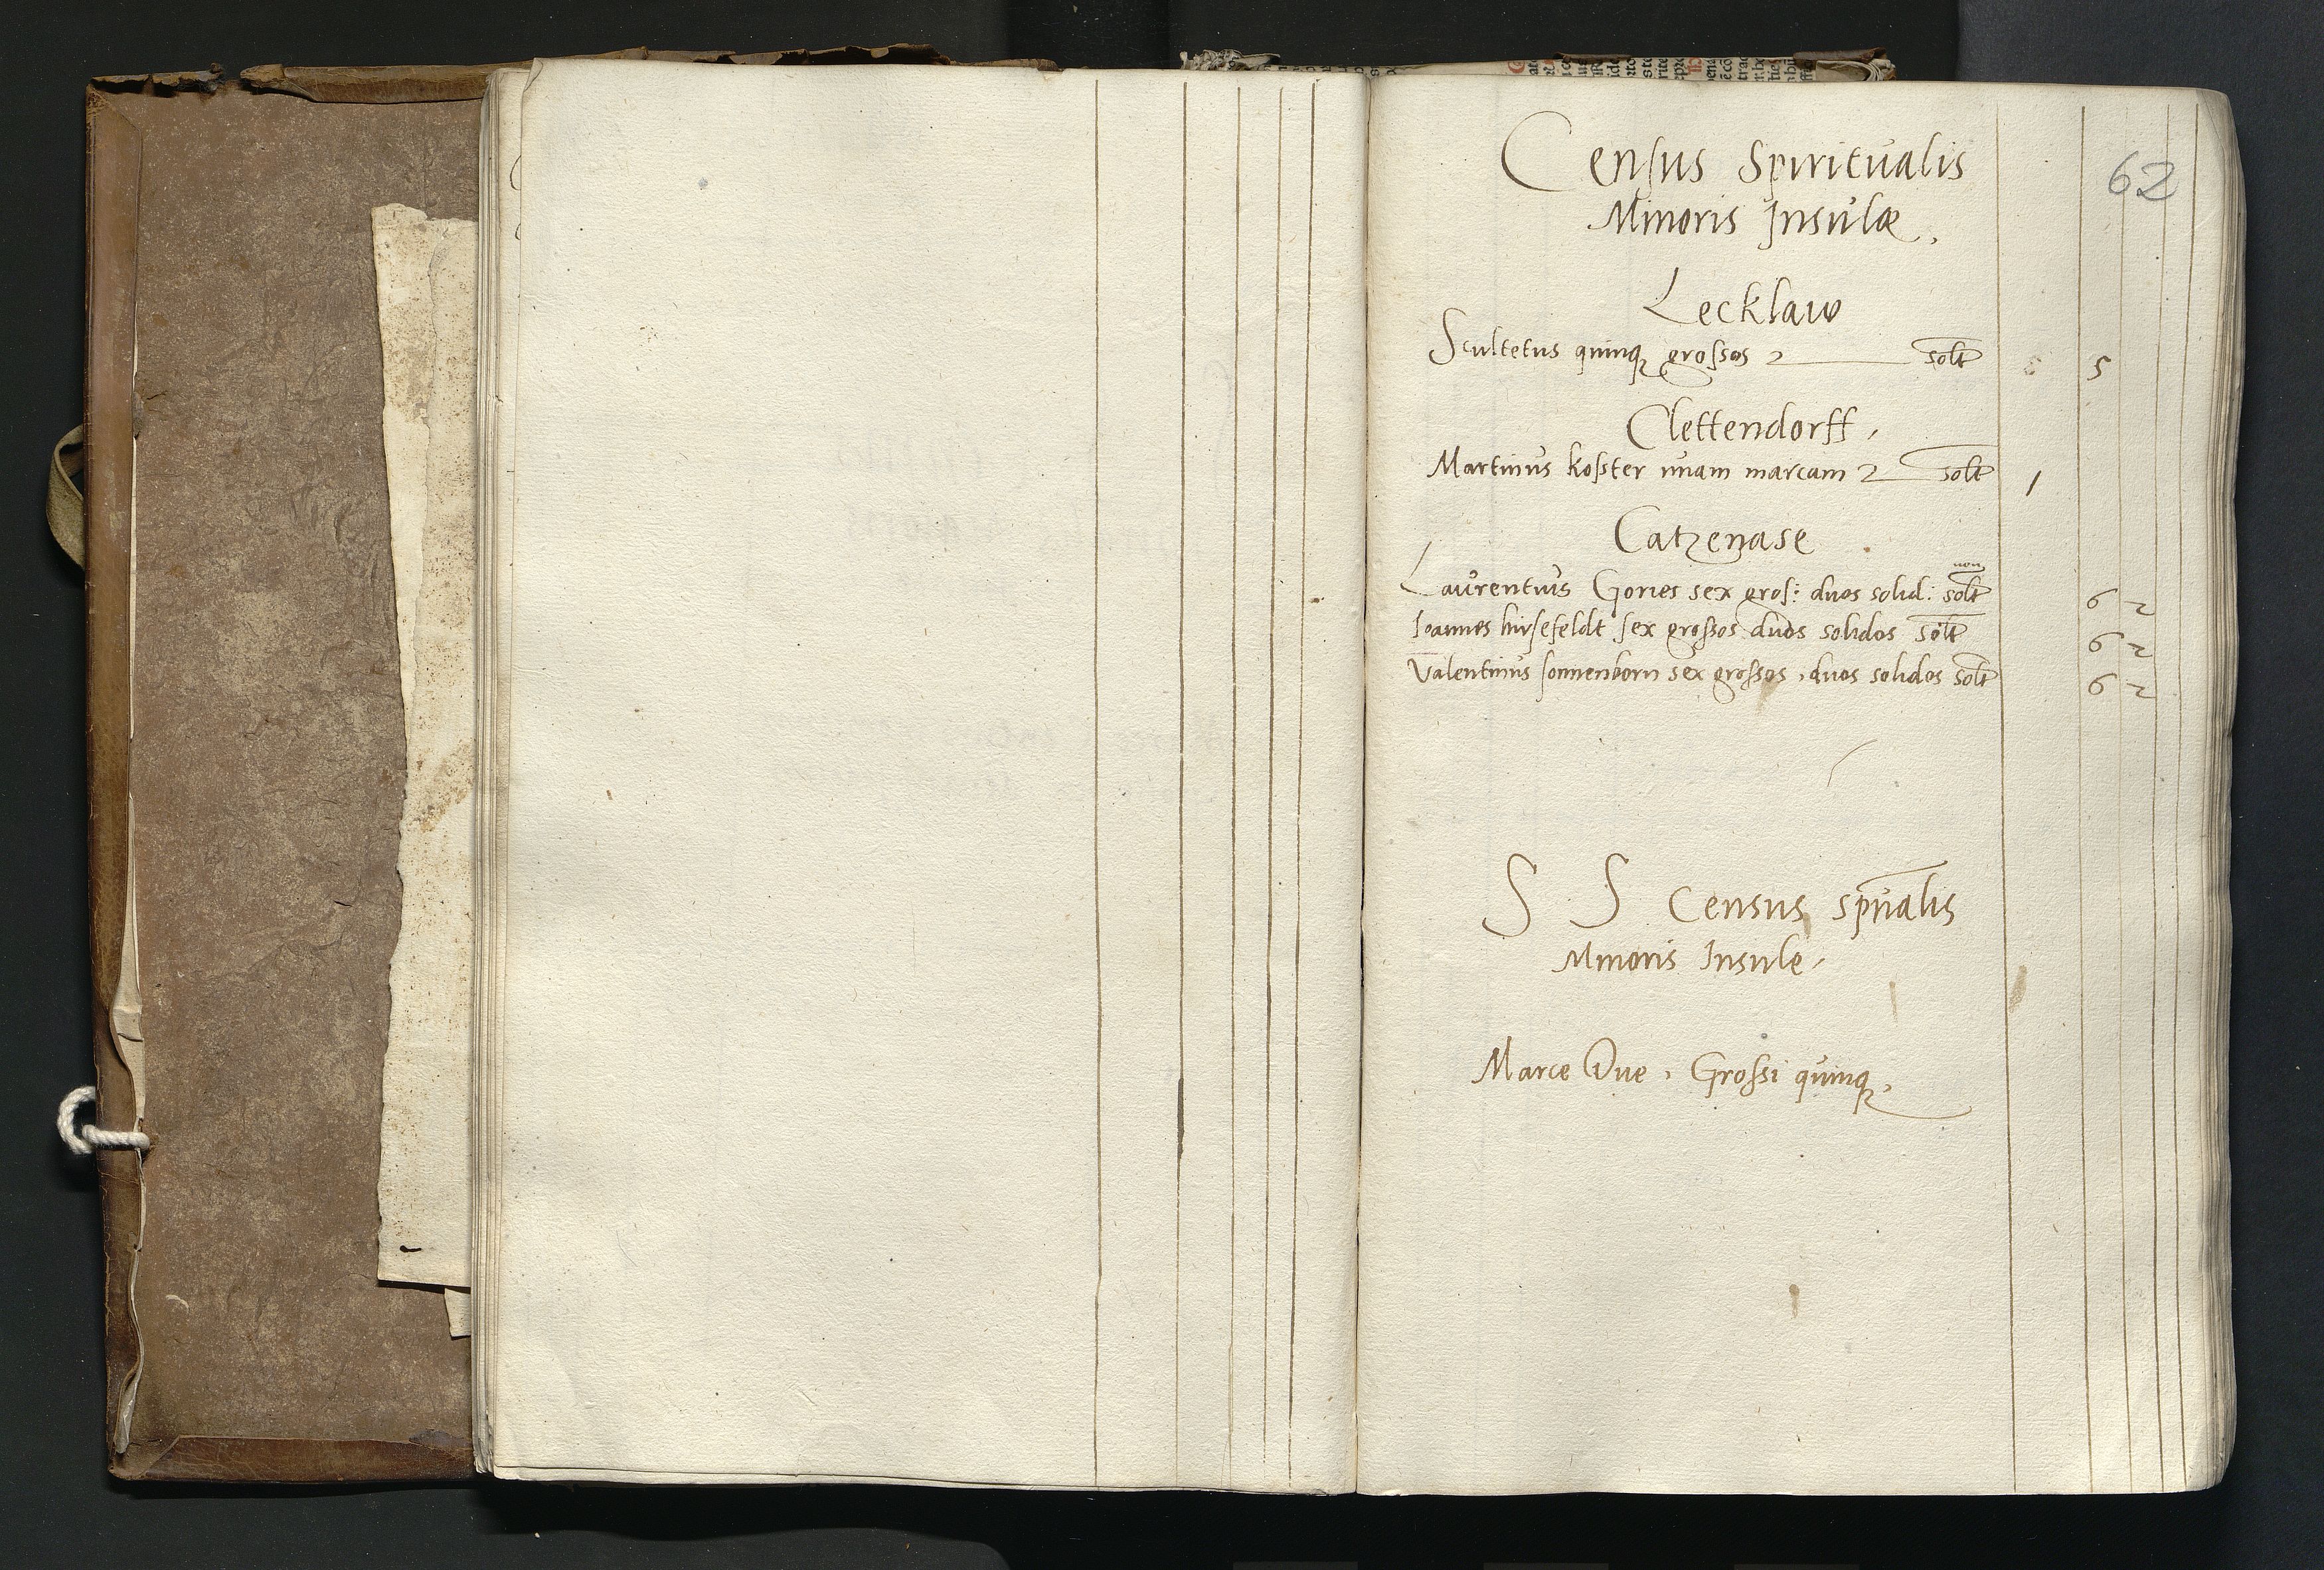 62
Census Spiritualis
Minoris Insulæ.
Lecklaw
Scultetus quinq grossos solt 5
Clettendorff.
Martinus koster unam marcam solt 1
Catzenase
non
Laurentius Gories sex gros: duos solid: solt 6 2
Ioannes hirsefeldt sex grossos duos solidos solt 6 2
Valentinus sonnenborn sex grossos, duos solidos solt 6 2
S S Census sprualis
Minoris Insule.
Marce Due, Grossi quinq,